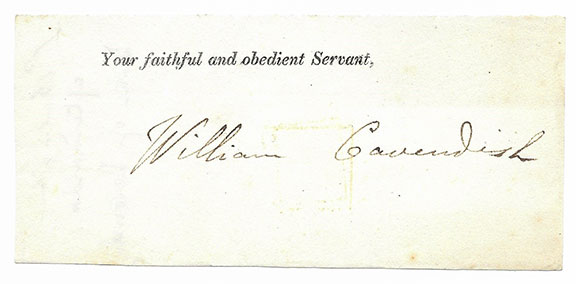 Your faithful and obedient Servant,
William Cavendish